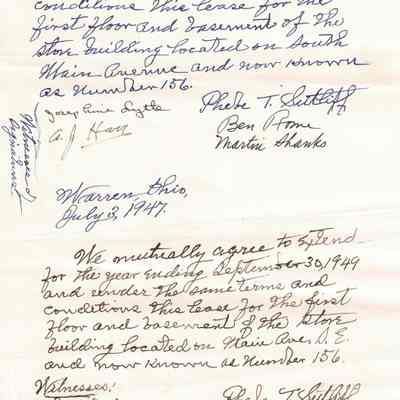 conditions this lease for the
first floor and basement of the
store building located on South
Main Avenue and now known
as number 156.
Josephine Lytle
Phebe T. Sutliff
A. J. Hay
Ben Rome
Martin Shanks
Witnessed,
Signatures
Warren Ohio,
July 3, 1947.
We mutually agree to extend
for the year ending September 30, 1949
and under the same terms and
conditions this lease for the first
floor and basement of the store
building located on Main Ave. S. E.
and now known as number 156.
Witnesses:
Phebe T. Sutliff